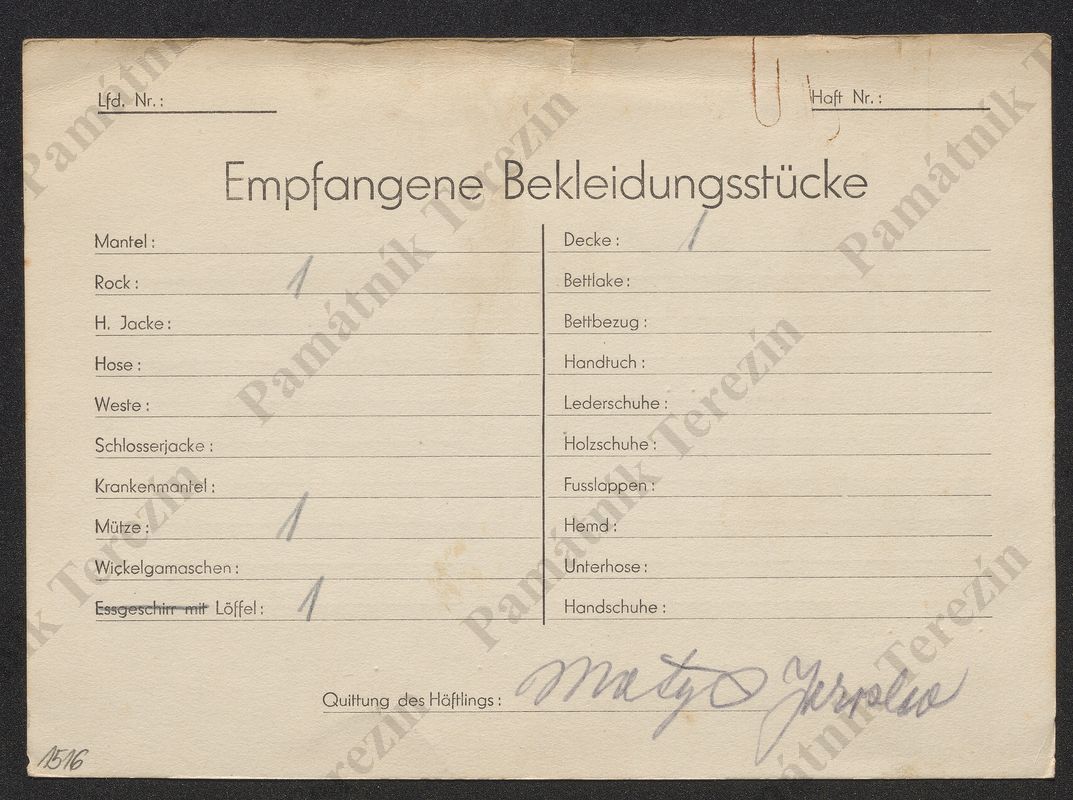 Lfd. Nr.:
Haft Nr.:
Empfangene Bekleidungsstücke
Mantel:
Rock: 1
H. Jacke:
Hose:
Weste:
Schlosserjacke:
Krankenmantel:
Mütze: 1
Wickelgamaschen:
Essgeschirr mit Löffel: 1
Decke: 1
Bettlake:
Bettbezug:
Handtuch:
Lederschuhe:
Holzschuhe:
Fusslappen:
Hemd:
Unterhose:
Handschuhe:
Quittung des Häftlings: Matys Jaroslav
1516
Památník Terezín